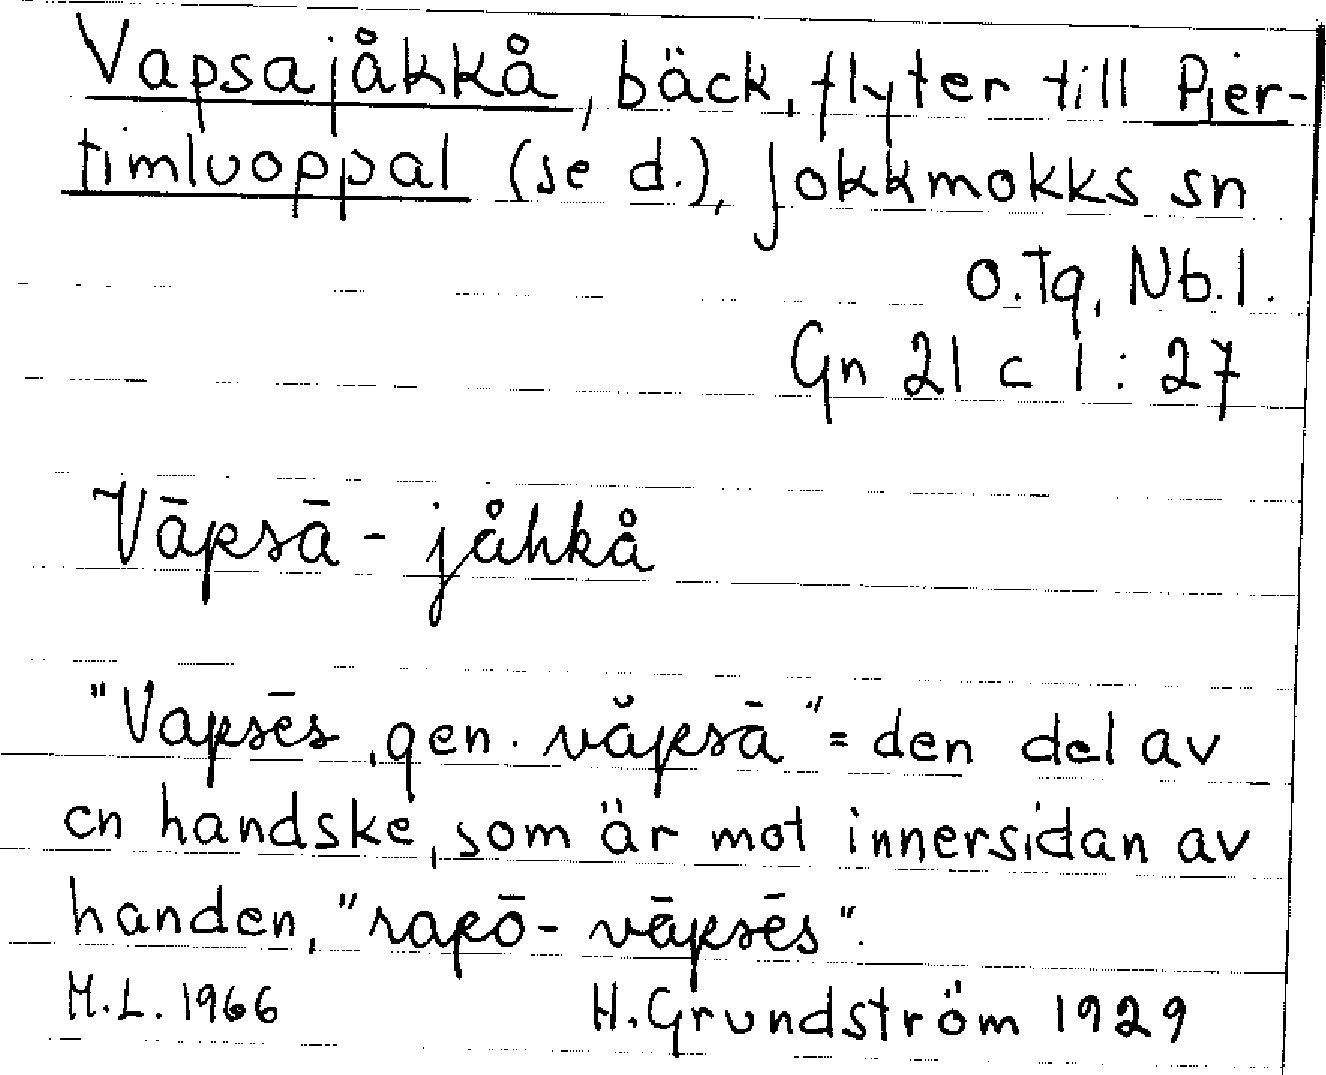 Vapsajåkkå, bäck, flyter till Pier-
timluoppal (se d.), Jokkmokks sn
o. Tg, Nb. l.
Gn 21 c 1 : 27
Vāpsā - jåhkå
"Vapsēs, gen. văpsā" = den del av
en handske, som är mot innersidan av
handen, "rapō - vāpsēs".
M.L. 1966 H. Grundström 1929